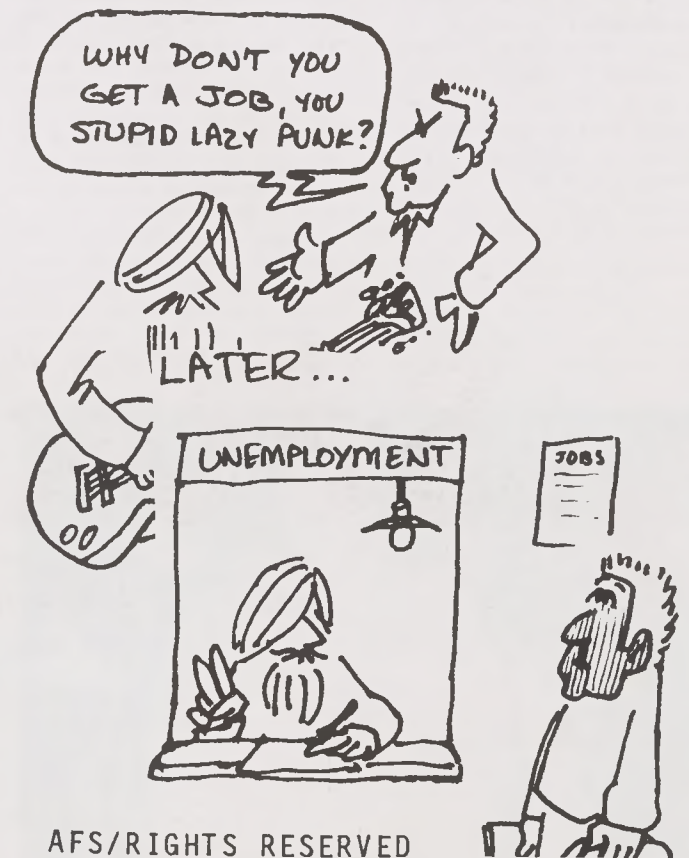 WHY DON'T YOU
GET A JOB, YOU
STUPID LAZY PUNK?
LATER...
UNEMPLOYMENT
JOBS
AFS/RIGHTS RESERVED